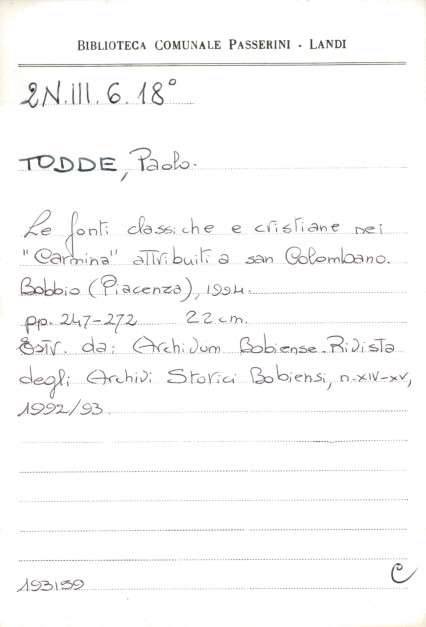 BIBLIOTECA COMUNALE PASSERINI - LANDI
2N.III.6.18°
TODDE, Paolo.
Le fonti classiche e cristiane nei
"Carmina" attribuiti a san Colombano.
Bobbio (Piacenza), 1994.
pp. 247-272 22 cm.
Estr. da: Archivum Bobiense. Rivista
degli Archivi Storici Bobiensi, n. XIV-XV,
1992/93.
193159
C